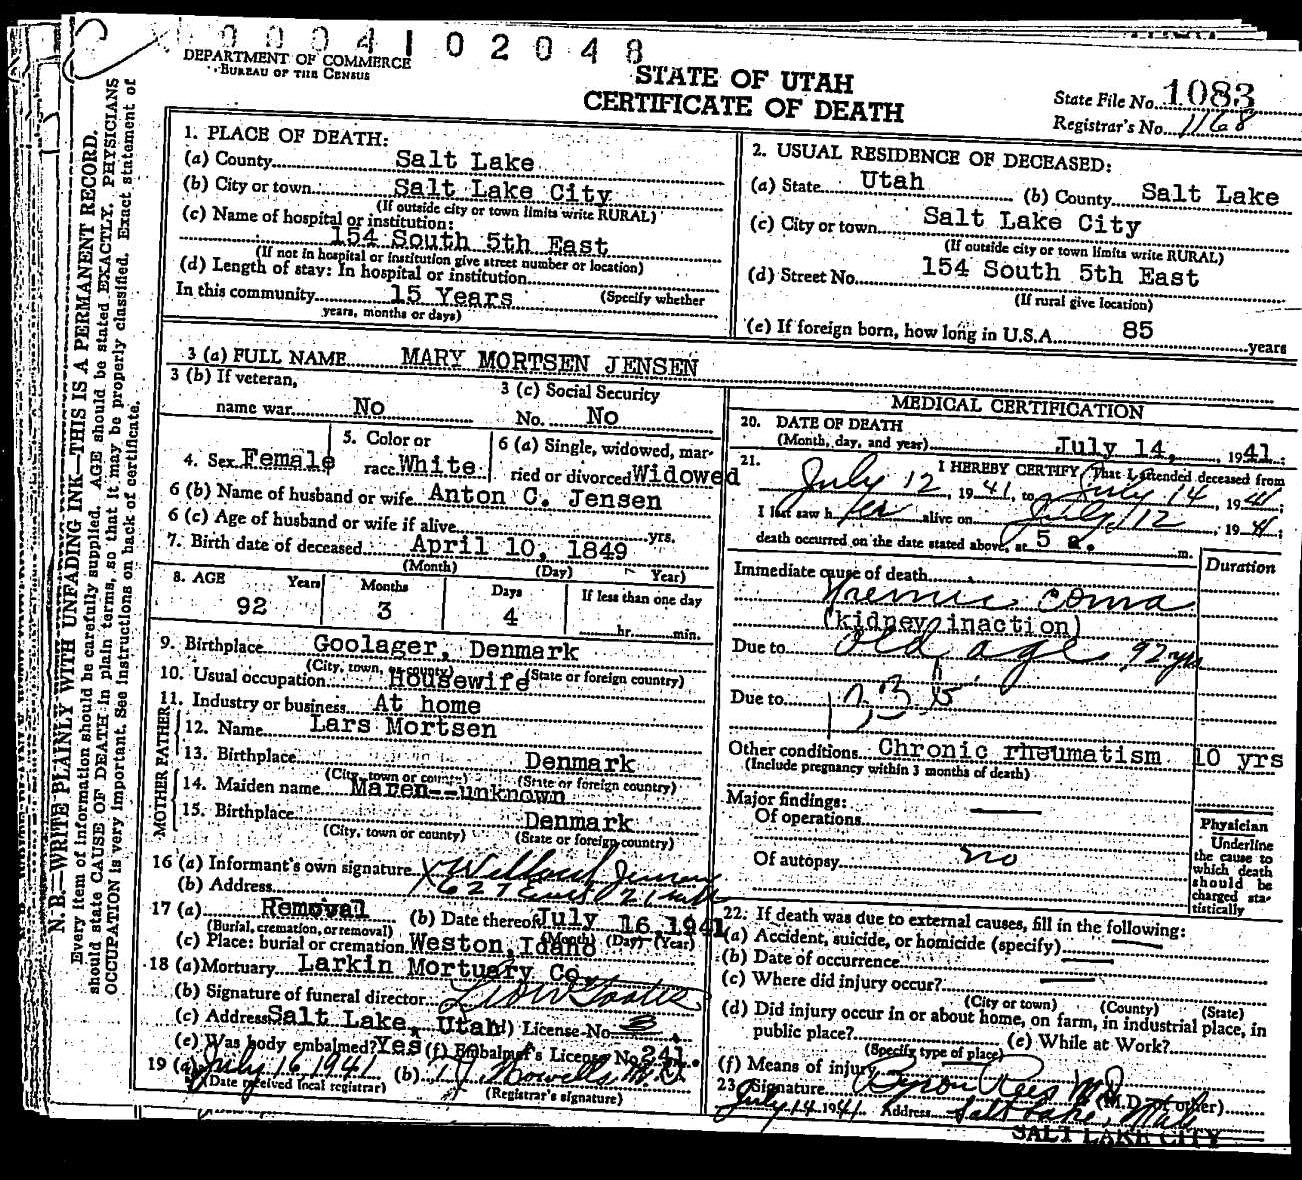 0004102048
DEPARTMENT OF COMMERCE
BUREAU OF THE CENSUS
STATE OF UTAH
CERTIFICATE OF DEATH
State File No. 1083
Registrar's No. 1168
1. PLACE OF DEATH:
(a) County Salt Lake
(b) City or town Salt Lake City
(If outside city or town limits write RURAL)
(c) Name of hospital or institution:
154 South 5th East
(If not in hospital or institution give street number or location)
(d) Length of stay: In hospital or institution
In this community 15 Years (Specify whether
years, months or days)
2. USUAL RESIDENCE OF DECEASED:
(a) State Utah (b) County Salt Lake
(c) City or town Salt Lake City
(If outside city or town limits write RURAL)
(d) Street No. 154 South 5th East
(If rural give location)
(e) If foreign born, how long in U.S.A. 85 years
3 (a) FULL NAME MARY MORTSEN JENSEN
3 (b) If veteran,
name war No
3 (c) Social Security
No. No
4. Sex Female
5. Color or
race White
6 (a) Single, widowed, mar-
ried or divorced Widowed
6 (b) Name of husband or wife Anton C. Jensen
6 (c) Age of husband or wife if alive yrs.
7. Birth date of deceased April 10, 1849
(Month) (Day) Year)
8. AGE Years Months Days If less than one day
92 3 4 hr. min.
9. Birthplace Goolager, Denmark
(City, town, or county) (State or foreign country)
10. Usual occupation Housewife
11. Industry or business At home
FATHER
12. Name Lars Mortsen
13. Birthplace Denmark
(City, town or county) (State or foreign country)
MOTHER
14. Maiden name Maren--unknown
15. Birthplace Denmark
(City, town or county) (State or foreign country)
16 (a) Informant's own signature X Willard Jensen
(b) Address 627 East 21
17 (a) Removal (b) Date thereof July 16, 1941
(Burial, cremation, or removal) (Month) (Day) (Year)
(c) Place: burial or cremation Weston, Idaho
18 (a) Mortuary Larkin Mortuary Co
(b) Signature of funeral director
(c) Address Salt Lake, Utah (d) License No. 3
(e) Was body embalmed? Yes (f) Embalmer's License No. 241.
19 (a) July 16, 1941 (b) M.D.
(Date received local registrar) (Registrar's signature)
MEDICAL CERTIFICATION
20. DATE OF DEATH
(Month, day, and year) July 14, 1941;
21. I HEREBY CERTIFY, That I attended deceased from
July 12, 1941, to July 14, 1941;
I last saw her alive on July 12, 1941;
death occurred on the date stated above, at 5 a. m.
Immediate cause of death Duration
Uremic coma
(kidney inaction)
Due to old age 92 yrs
Due to
Other conditions Chronic rheumatism 10 yrs
(Include pregnancy within 3 months of death)
Major findings:
Of operations
Of autopsy no
Physician
Underline
the cause to
which death
should be
charged sta-
tistically
22. If death was due to external causes, fill in the following:
(a) Accident, suicide, or homicide (specify)
(b) Date of occurrence
(c) Where did injury occur?
(City or town) (County) (State)
(d) Did injury occur in or about home, on farm, in industrial place, in
public place? (e) While at Work?
(Specify type of place)
(f) Means of injury
23. Signature Byron Rees MD (M.D. or other)
July 14 1941 Address Salt Lake, Utah
SALT LAKE CITY
N. B.—WRITE PLAINLY WITH UNFADING INK—THIS IS A PERMANENT RECORD.
Every item of information should be carefully supplied. AGE should be stated EXACTLY. PHYSICIANS
should state CAUSE OF DEATH in plain terms, so that it may be properly classified. Exact statement of
OCCUPATION is very important. See instructions on back of certificate.